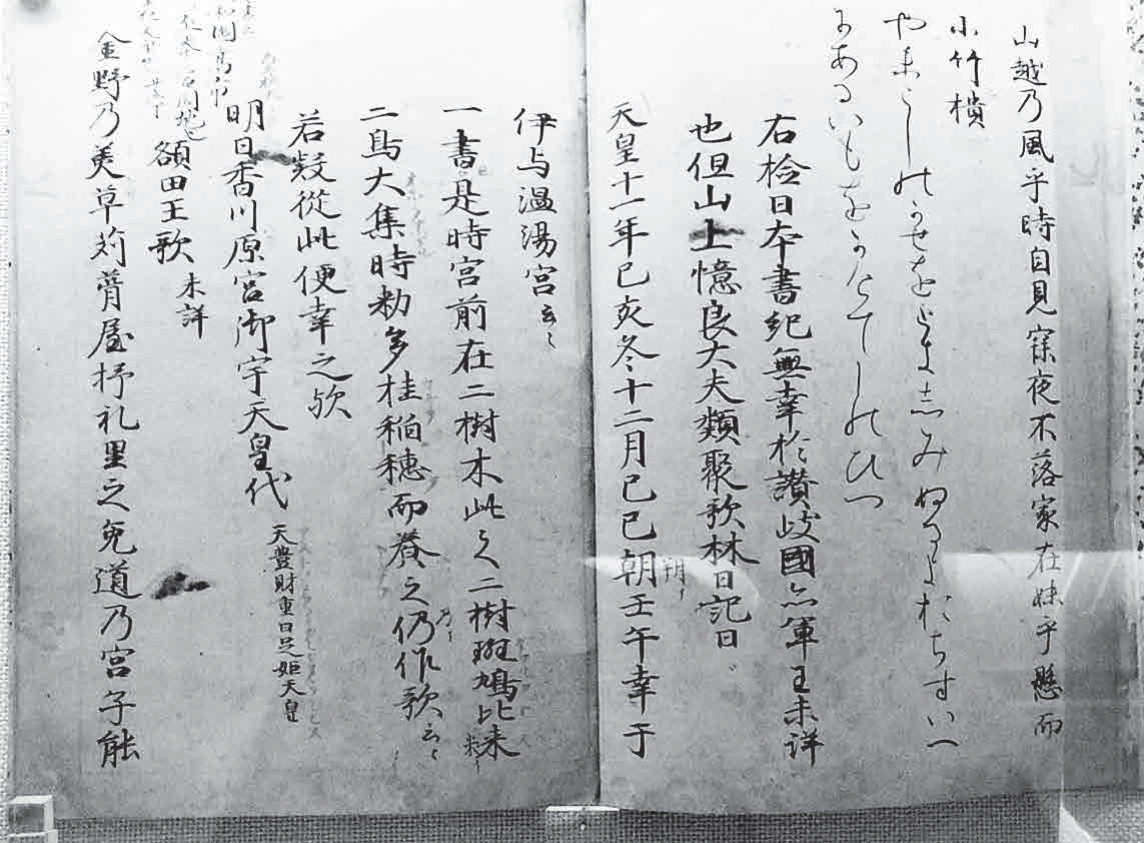 山越乃風乎時自見寐夜不落家在妹乎懸而
小竹樻
やまこしのかせをときしみぬるよおちすいへ
にあるいもをかけてしのひつ
右検日本書紀無幸於讃岐國亦軍王未詳
也但山上憶良大夫類聚歌林曰記曰
天皇十一年己亥冬十二月己巳朝壬午幸于
朔
伊与温湯宮云々
一書是時宮前在二樹木此之二樹斑鳩比来
二鳥大集時勅多挂稲穂而養之仍作歌云々
若疑從此便幸之歟
明日香川原宮御宇天皇代 天豊財重日足姫天皇
額田王歌 未詳
金野乃美草苅葺屋杼礼里之兎道乃宮子能